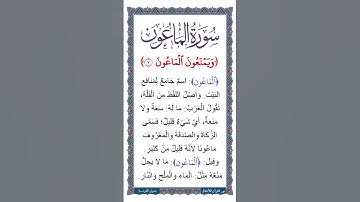 سُورَةُ الْمَاعُونِ
﴿وَيَمْنَعُونَ ٱلْمَاعُونَ ۝٧﴾
(ٱلْمَاعُونَ): اسمٌ جَامِعٌ لِمَنَافِعِ
البَيْتِ. وَأَصْلُ اللَّفْظِ مِنَ القِلَّةِ،
تَقُولُ الْعَرَبُ: مَا لَهُ سَعَةٌ وَلَا
مَعْنَةٌ، أَيْ شَيْءٌ قَلِيلٌ؛ فَسَمَّى
الزَّكَاةَ وَالصَّدَقَةَ وَالْمَعْرُوفَ
مَاعُونًا لِأَنَّهُ قَلِيلٌ مِنْ كَثِيرٍ
وَقِيلَ: (ٱلْمَاعُونَ): مَا لَا يَحِلُّ
مَنْعُهُ مِثْلَ: الْمَاءِ وَالْمِلْحِ وَالنَّارِ